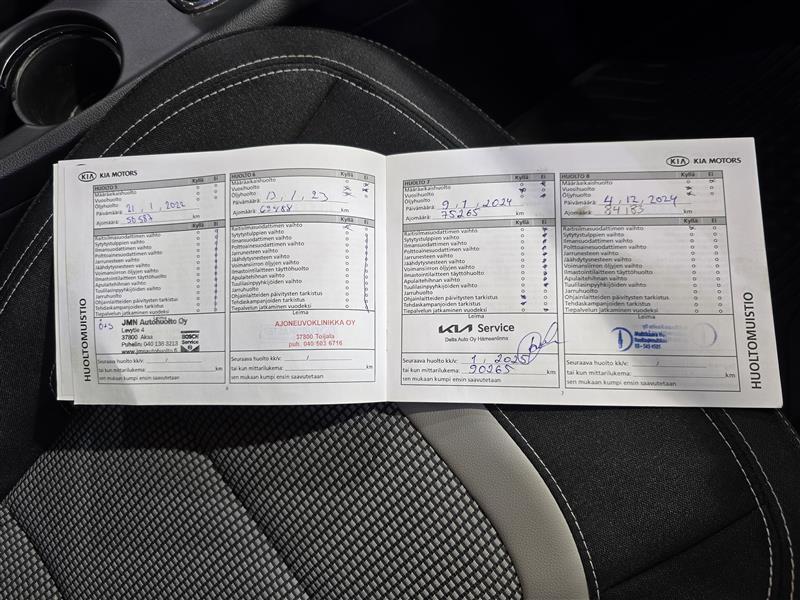 KIA KIA MOTORS
HUOLTOMUISTIO
HUOLTO 5 Kyllä Ei
Määräaikaishuolto
Vuosihuolto
Öljyhuolto
Päivämäärä: 21, 1, 2022
Ajomäärä: 56587 km
Kyllä Ei
Raitisilmasuodattimen vaihto
Sytytystulppien vaihto
Ilmansuodattimen vaihto
Polttoainesuodattimen vaihto
Jarrunesteen vaihto
Jäähdytysnesteen vaihto
Voimansiirron öljyjen vaihto
Ilmastointilaitteen täyttöhuolto
Apulaitehihnan vaihto
Tuulilasinpyyhkijöiden vaihto
Jarruhuolto
Ohjainlaitteiden päivitysten tarkistus
Tehdaskampanjoiden tarkistus
Tiepalvelun jatkaminen vuodeksi
Leima
Ö+S
JMN Autohuolto Oy
Levytie 4
37800 Akaa
Puhelin 040 136 3213
www.jmnautohuolto.fi
BOSCH
Service
Seuraava huolto kk/v:
tai kun mittarilukema: km
sen mukaan kumpi ensin saavutetaan
6
HUOLTO 6 Kyllä Ei
Määräaikaishuolto
Vuosihuolto
Öljyhuolto
Päivämäärä: 13, 1, 23
Ajomäärä: km
Kyllä Ei
Raitisilmasuodattimen vaihto
Sytytystulppien vaihto
Ilmansuodattimen vaihto
Polttoainesuodattimen vaihto
Jarrunesteen vaihto
Jäähdytysnesteen vaihto
Voimansiirron öljyjen vaihto
Ilmastointilaitteen täyttöhuolto
Apulaitehihnan vaihto
Tuulilasinpyyhkijöiden vaihto
Jarruhuolto
Ohjainlaitteiden päivitysten tarkistus
Tehdaskampanjoiden tarkistus
Tiepalvelun jatkaminen vuodeksi
Leima
AJONEUVOKLINIKKA OY
37800 Toijala
puh. 040 503 6716
Seuraava huolto kk/v:
tai kun mittarilukema: km
sen mukaan kumpi ensin saavutetaan
KIA KIA MOTORS
HUOLTO 7 Kyllä Ei
Määräaikaishuolto
Vuosihuolto
Öljyhuolto
Päivämäärä: 9, 1, 2024
Ajomäärä: 75265 km
Kyllä Ei
Raitisilmasuodattimen vaihto
Sytytystulppien vaihto
Ilmansuodattimen vaihto
Polttoainesuodattimen vaihto
Jarrunesteen vaihto
Jäähdytysnesteen vaihto
Voimansiirron öljyjen vaihto
Ilmastointilaitteen täyttöhuolto
Apulaitehihnan vaihto
Tuulilasinpyyhkijöiden vaihto
Jarruhuolto
Ohjainlaitteiden päivitysten tarkistus
Tehdaskampanjoiden tarkistus
Tiepalvelun jatkaminen vuodeksi
Leima
KIA Service
Delta Auto Oy Hämeenlinna
Seuraava huolto kk/v: 1, 2025
tai kun mittarilukema: 90265 km
sen mukaan kumpi ensin saavutetaan
7
HUOLTO 8 Kyllä Ei
Määräaikaishuolto
Vuosihuolto
Öljyhuolto
Päivämäärä: 4, 12, 2024
Ajomäärä: 84183 km
Kyllä Ei
Raitisilmasuodattimen vaihto
Sytytystulppien vaihto
Ilmansuodattimen vaihto
Polttoainesuodattimen vaihto
Jarrunesteen vaihto
Jäähdytysnesteen vaihto
Voimansiirron öljyjen vaihto
Ilmastointilaitteen täyttöhuolto
Apulaitehihnan vaihto
Tuulilasinpyyhkijöiden vaihto
Jarruhuolto
Ohjainlaitteiden päivitysten tarkistus
Tehdaskampanjoiden tarkistus
Tiepalvelun jatkaminen vuodeksi
Leima
Seuraava huolto kk/v:
tai kun mittarilukema: km
sen mukaan kumpi ensin saavutetaan
HUOLTOMUISTIO